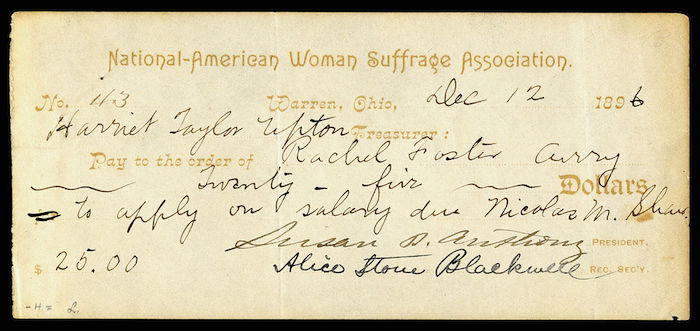 National-American Woman Suffrage Association.
No. 43 Warren, Ohio, Dec 12 1896
Harriet Taylor Upton Treasurer:
Pay to the order of Rachel Foster Avery
Twenty-five Dollars
to apply on salary due Nicolas M. Shaw.
Susan B. Anthony PRESIDENT.
$ 25.00 Alice Stone Blackwell REC. SEC'Y.